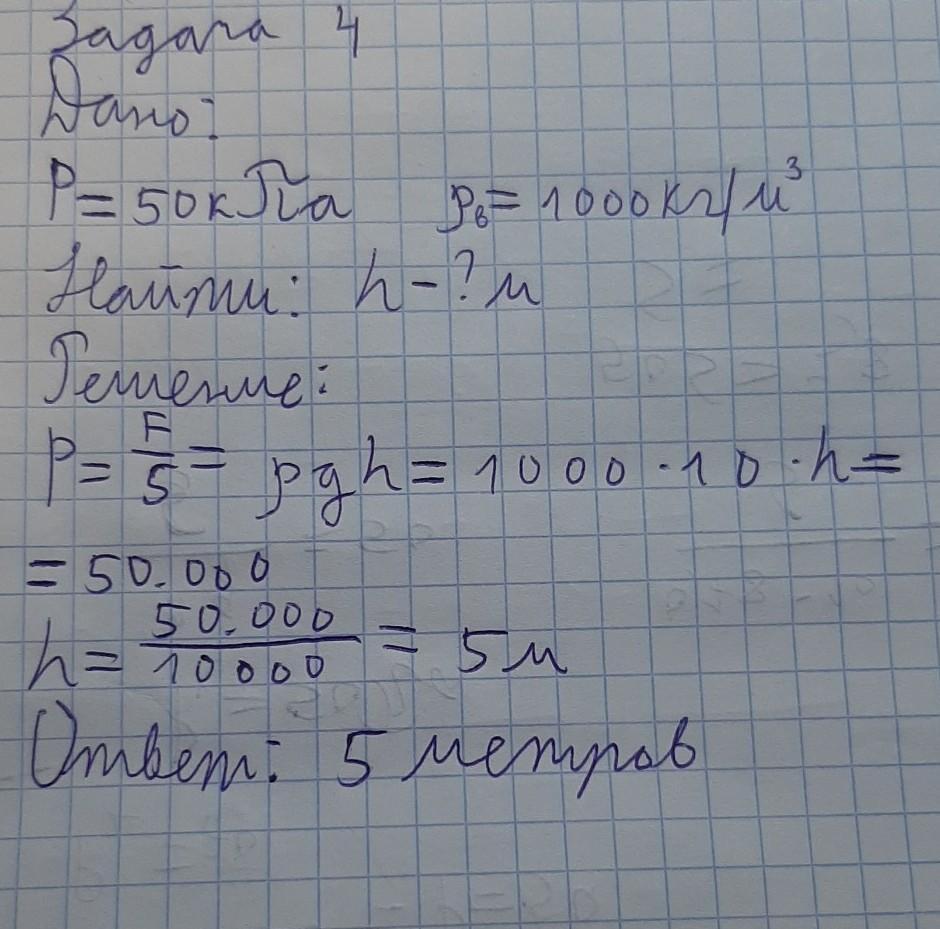 Задача 4
Дано:
P = 50кПа ρв = 1000кг/м³
Найти: h - ? м
Решение:
P = F/S = ρgh = 1000 · 10 · h =
= 50.000
h = 50.000/10000 = 5м
Ответ: 5 метров